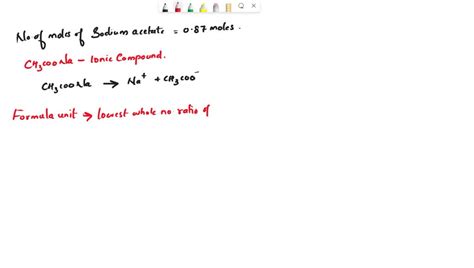 No of moles of Sodium acetate = 0.87 moles.
CH₃COONa – Ionic Compound.
CH₃COONa → Na⁺ + CH₃COO⁻
Formula unit → lowest whole no ratio of